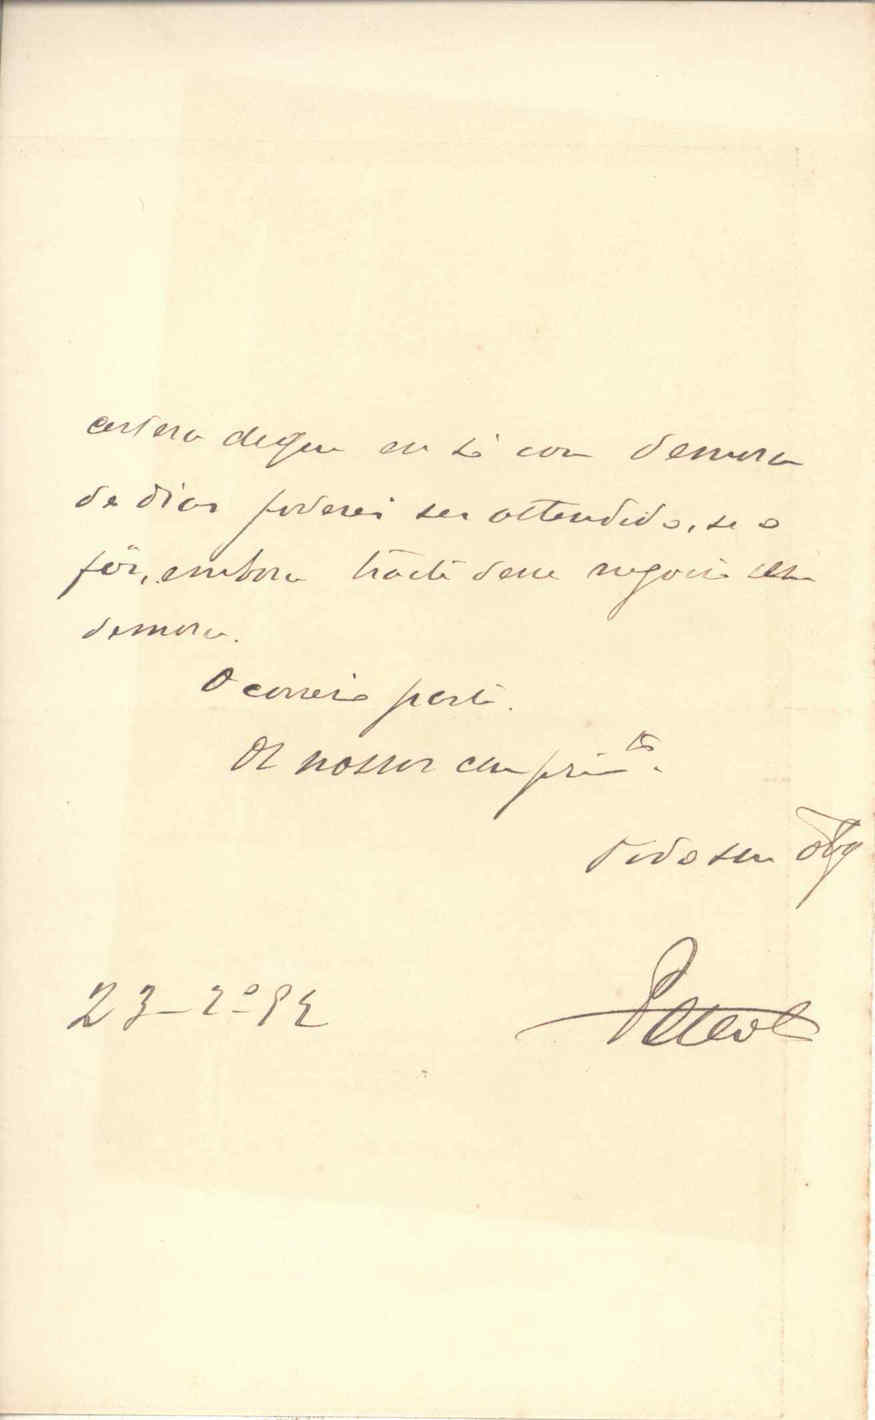 certera de que eu só com demora
de dias poderei ser attendido, se o
fôr, embora tracte desse negocio sem
demora.
O correio parte.
Os nossos cumprim.tos.
Todo seu obg
23-2º-92